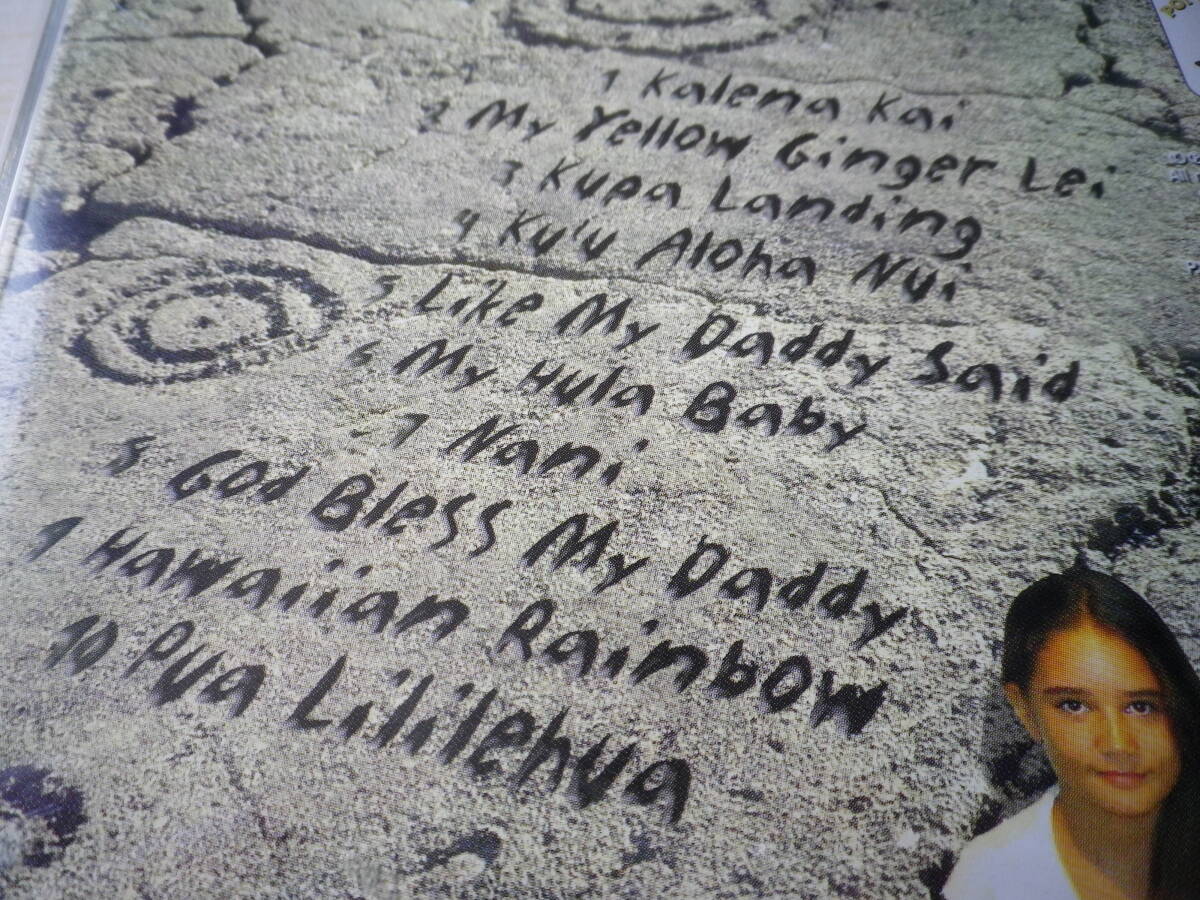 1 Kalena Kai
2 My Yellow Ginger Lei
3 Kupa Landing
4 Ku'u Aloha Nui
5 Like My Daddy Said
6 My Hula Baby
7 Nani
8 God Bless My Daddy
9 Hawaiian Rainbow
10 Pua Lililehua